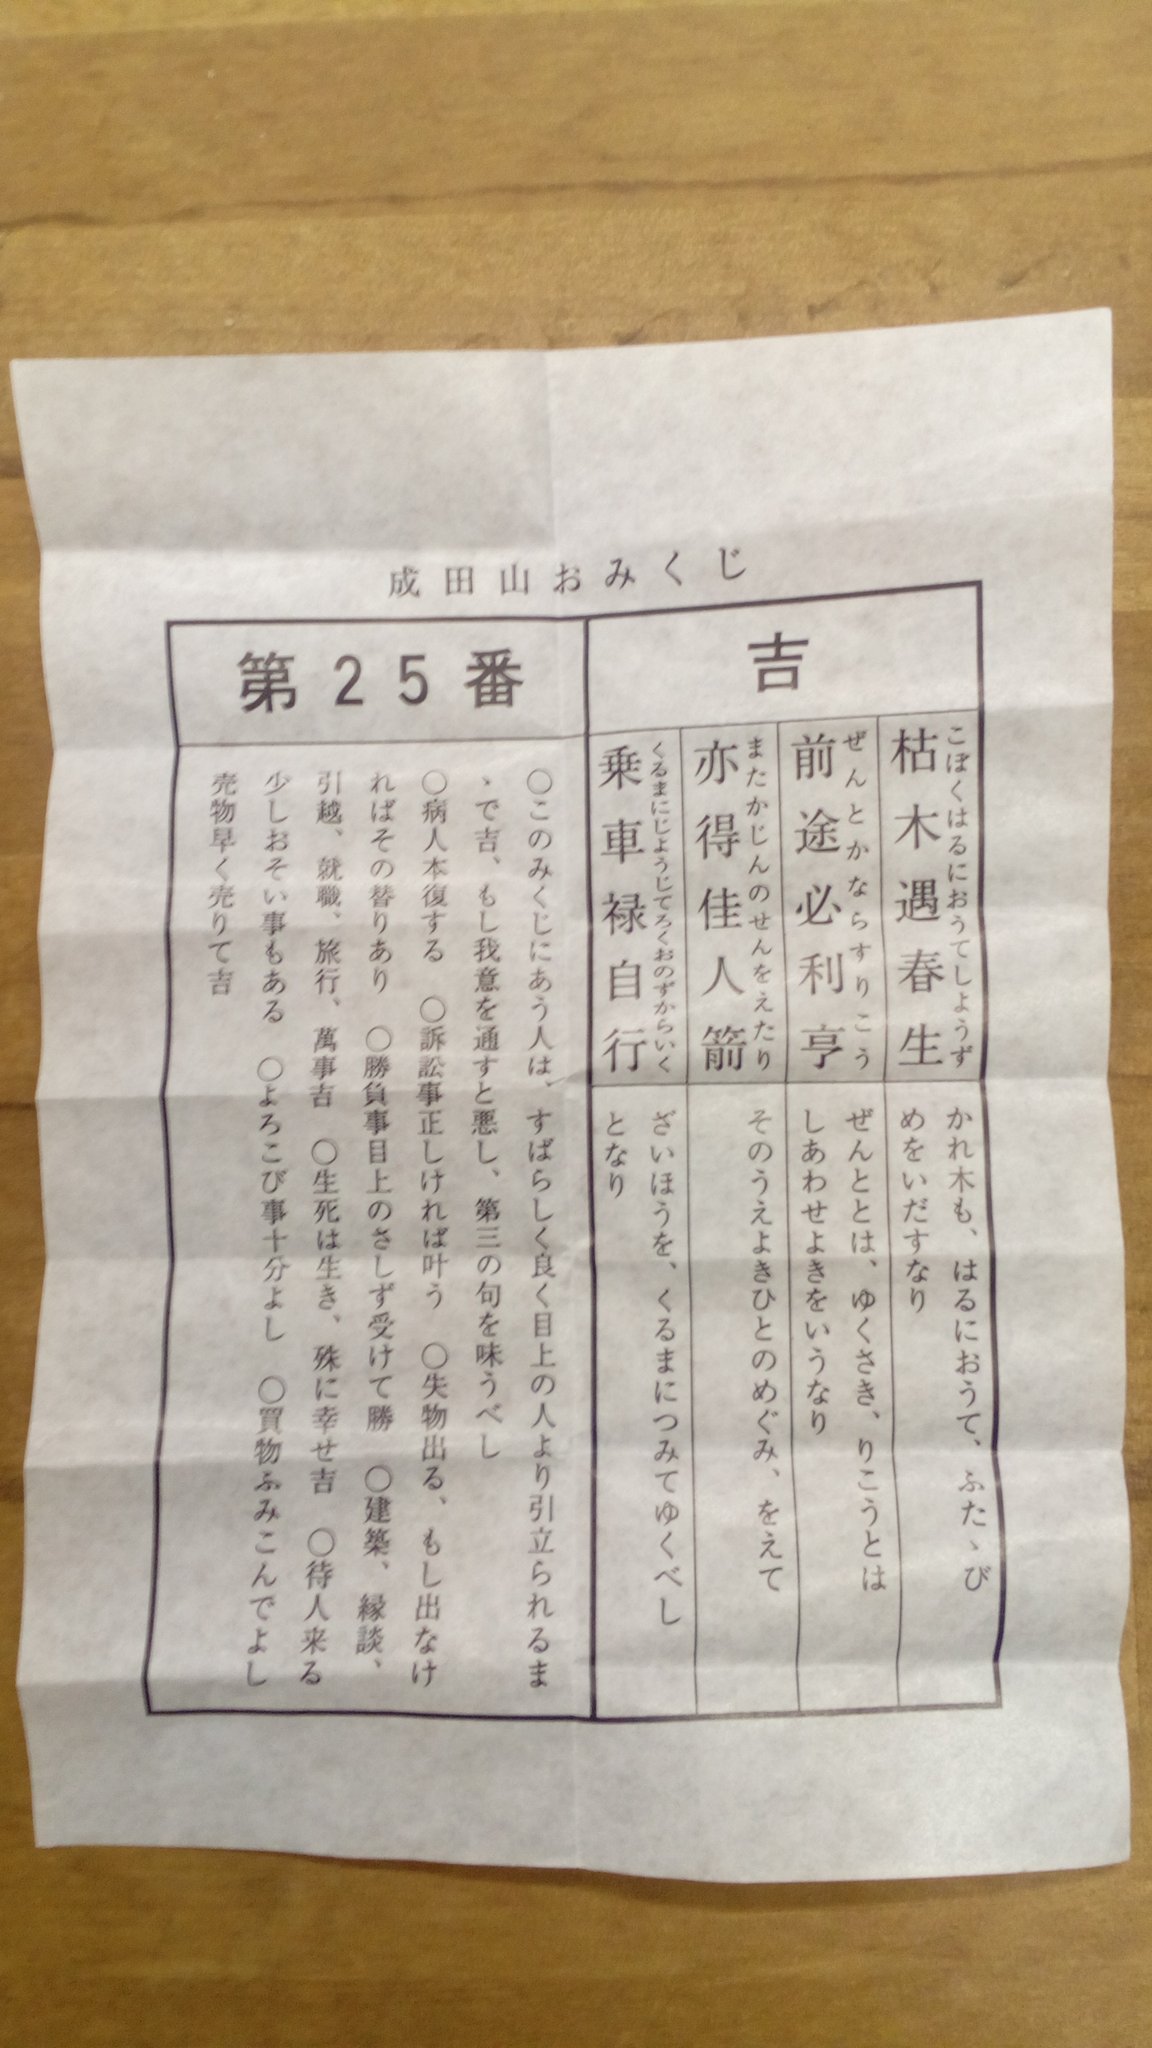 成田山おみくじ
吉
こぼくはるにおうてしようず
枯木遇春生
かれ木も、はるにおうて、ふたゝび
めをいだすなり
ぜんとかならすりこう
前途必利亨
ぜんととは、ゆくさき、りこうとは
しあわせよきをいうなり
またかじんのせんをえたり
亦得佳人箭
そのうえよきひとのめぐみ、をえて
くるまにじようじてろくおのずからいく
乗車禄自行
ざいほうを、くるまにつみてゆくべし
となり
第25番
○このみくじにあう人は、すばらしく良く目上の人より引立られるま
ゝで吉、もし我意を通すと悪し、第三の句を味うべし
○病人本復する ○訴訟事正しければ叶う ○失物出る、もし出なけ
ればその替りあり ○勝負事目上のさしず受けて勝 ○建築、縁談、
引越、就職、旅行、萬事吉 ○生死は生き、殊に幸せ吉 ○待人来る
少しおそい事もある ○よろこび事十分よし ○買物ふみこんでよし
売物早く売りて吉